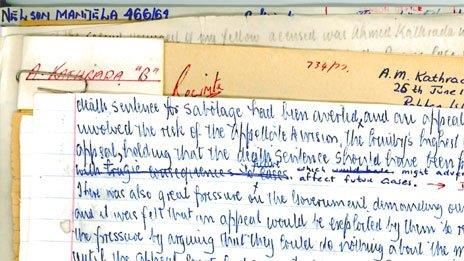 NELSON MANDELA 466/64
of my fellow accused was Ahmed Kathrada
734/77.
A. KATHRADA "B"
A.M. Kathra
25th June 1
death sentence for sabotage had been averted, and an appeal
involved the risk of the Appellate Division, the country's highest
appeal, holding that the death sentence should have been
with tragic consequences which would have might
affect future cases.
There was also great pressure on the Government demanding our
and it was felt that an appeal would be exploited by them to
the pressure by arguing that they could do nothing about the
until the appeal